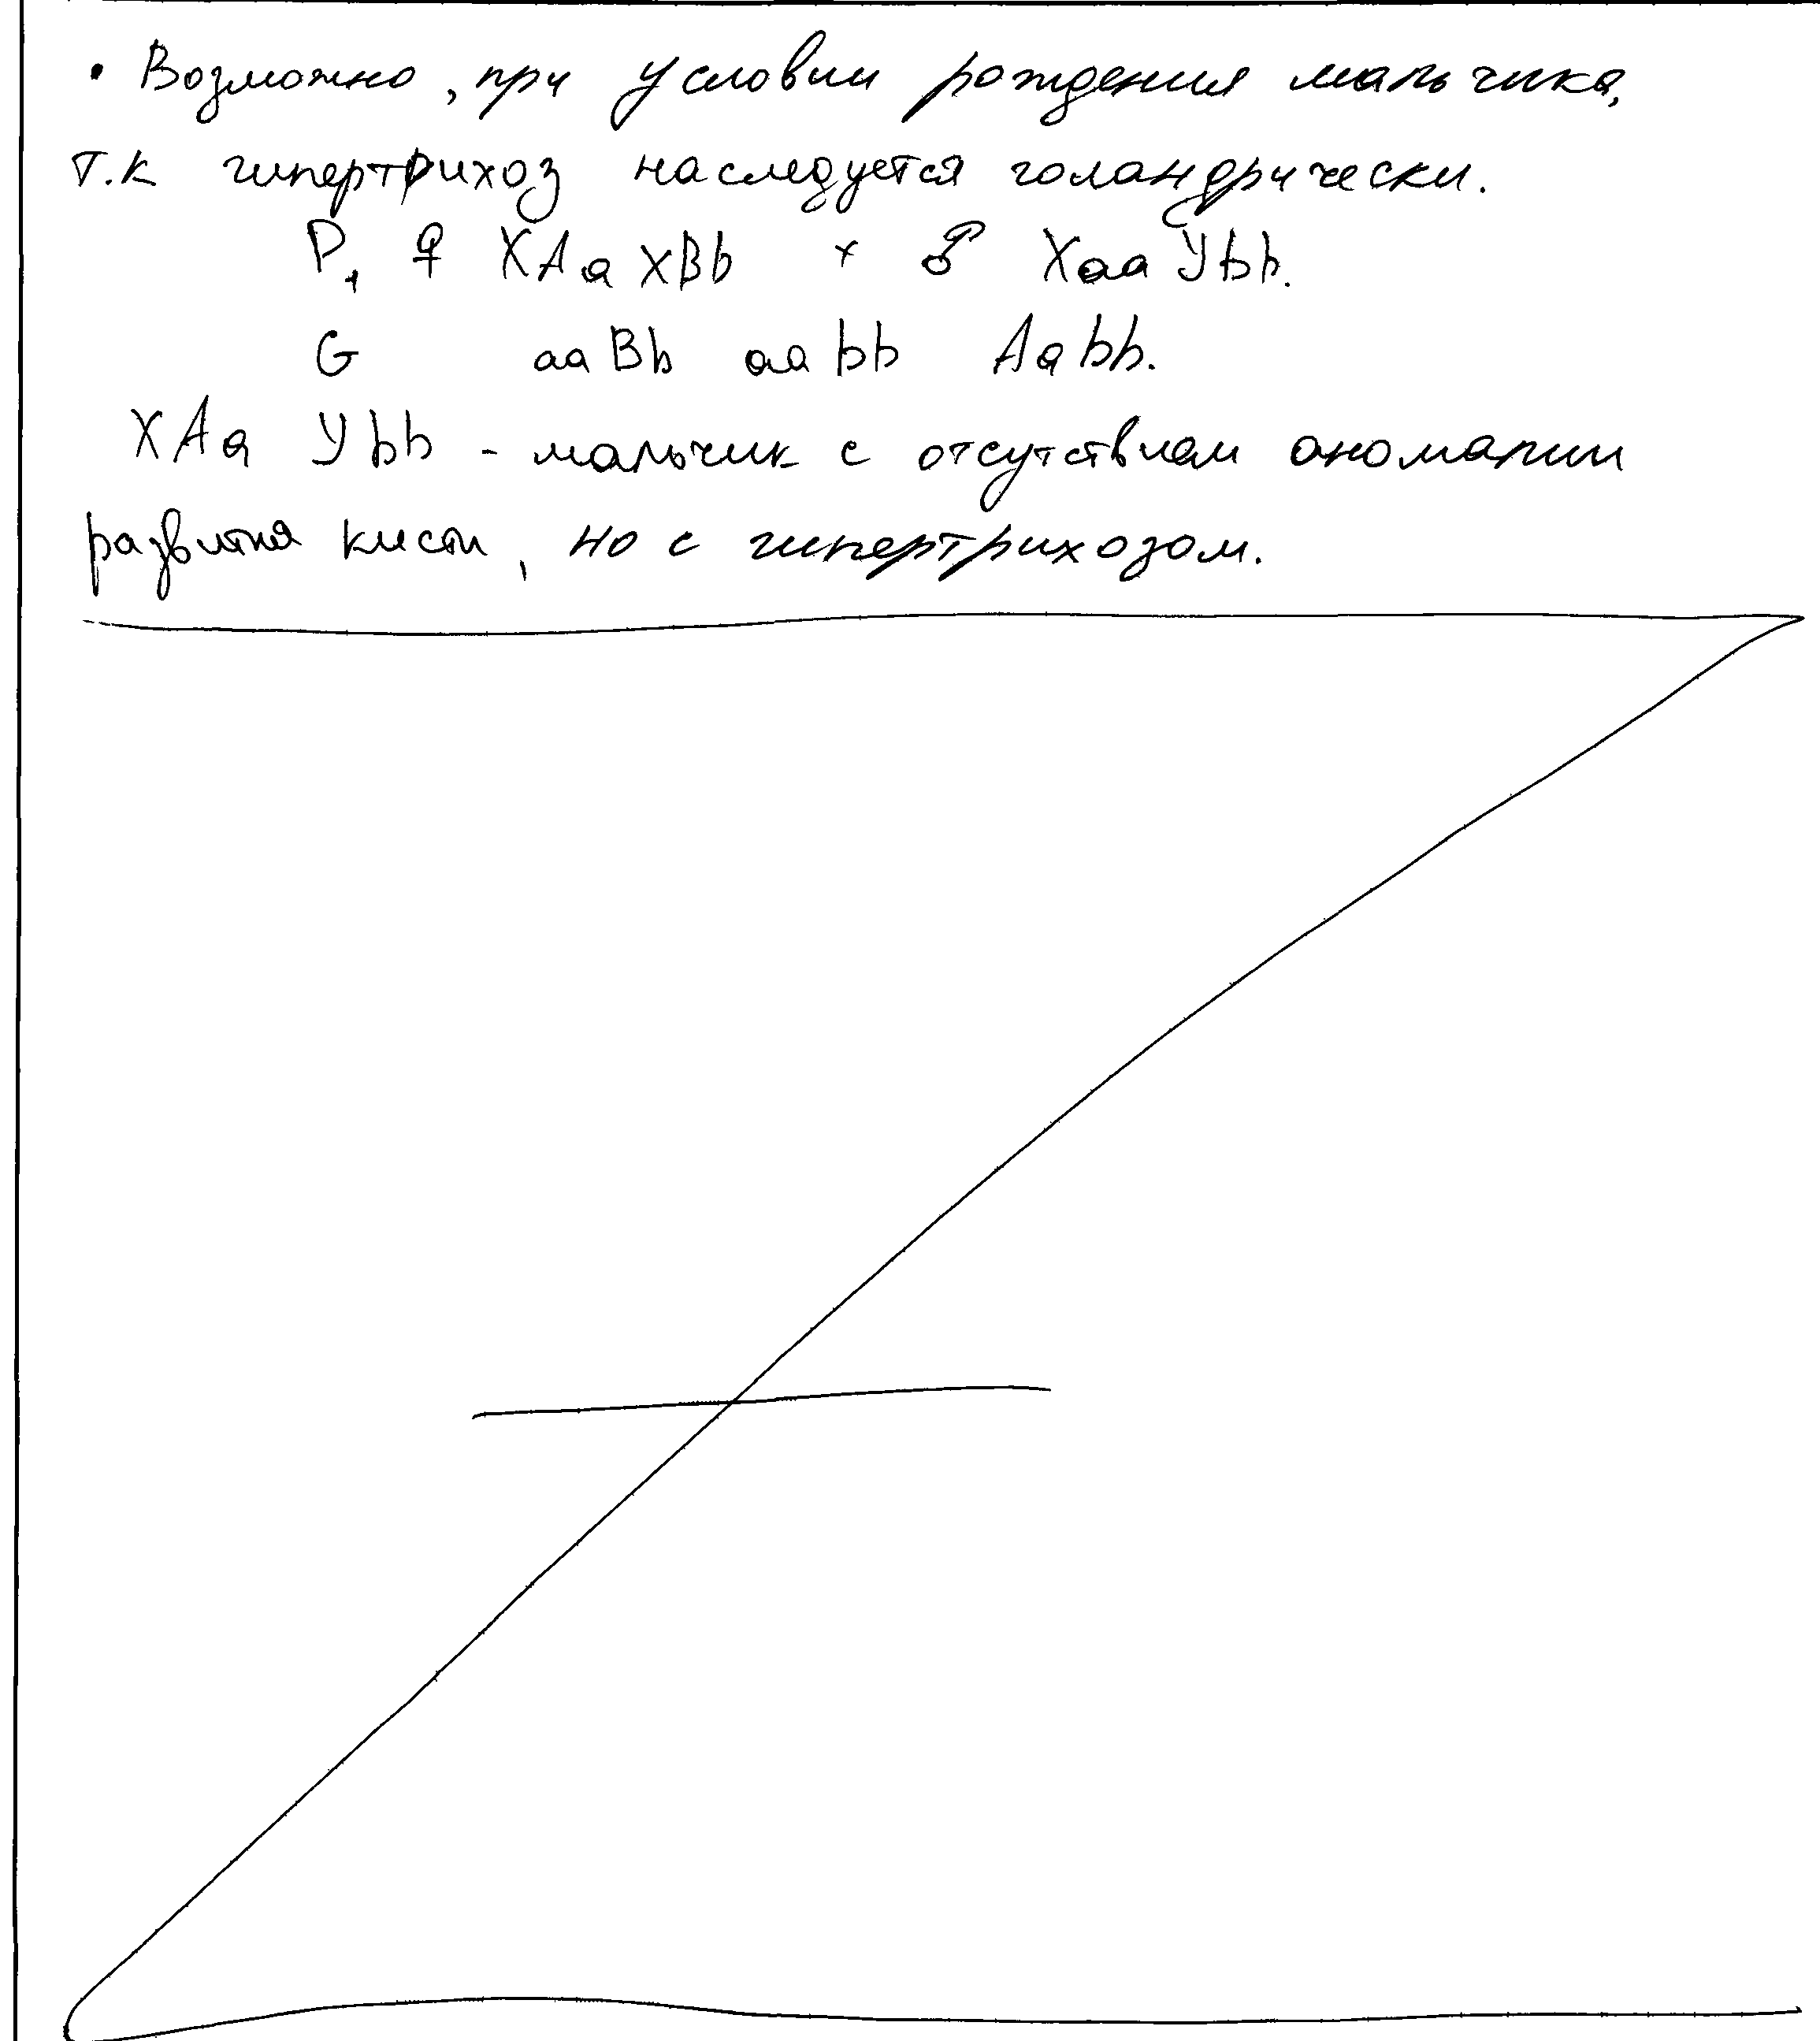 • Возможно, при условии рождения мальчика,
т.к гипертрихоз наследуется голандрически.
P, ♀ XAa XBb × ♂ Xaa Ybb.
G aaBb aabb Aabb.
XAa Ybb - мальчик с отсутствием аномалии
развития кисти, но с гипертрихозом.